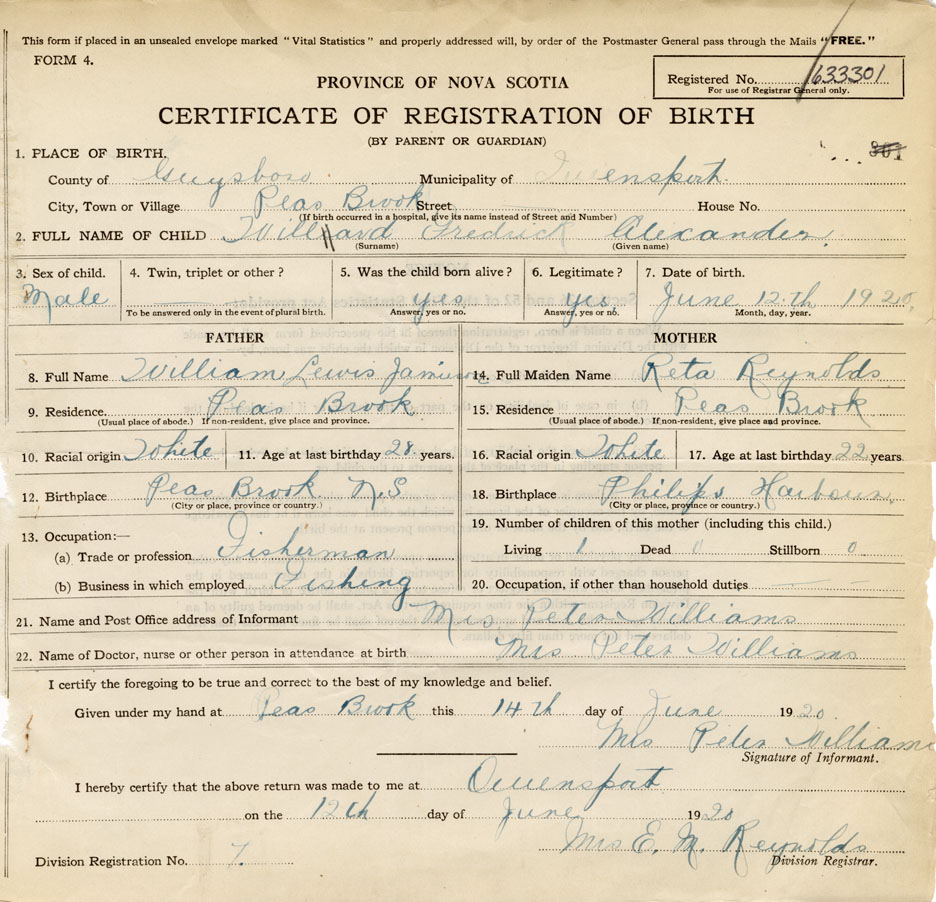 This form if placed in an unsealed envelope marked "Vital Statistics" and properly addressed will, by order of the Postmaster General pass through the Mails "FREE."
FORM 4.
Registered No. 633301
For use of Registrar General only.
PROVINCE OF NOVA SCOTIA
CERTIFICATE OF REGISTRATION OF BIRTH
(BY PARENT OR GUARDIAN)
1. PLACE OF BIRTH.
County of Guysboro Municipality of Owensport
City, Town or Village Peas Brook Street House No.
(If birth occurred in a hospital, give its name instead of Street and Number)
2. FULL NAME OF CHILD Willard Fredrick Alexander
(Surname) (Given name)
3. Sex of child. 4. Twin, triplet or other? 5. Was the child born alive? 6. Legitimate? 7. Date of birth.
Male yes yes June 12th 1920
To be answered only in the event of plural birth. Answer, yes or no. Answer, yes or no. Month, day, year.
FATHER MOTHER
8. Full Name William Lewis Jamieson 14. Full Maiden Name Reta Reynolds
9. Residence Peas Brook 15. Residence Peas Brook
(Usual place of abode.) If non-resident, give place and province. (Usual place of abode.) If non-resident, give place and province.
10. Racial origin White 11. Age at last birthday 28 years. 16. Racial origin White 17. Age at last birthday 22 years.
12. Birthplace Peas Brook N.S 18. Birthplace Philips Harbour
(City or place, province or country.) (City or place, province or country.)
13. Occupation:— 19. Number of children of this mother (including this child.)
(a) Trade or profession Fisherman Living 1 Dead 0 Stillborn 0
(b) Business in which employed Fishing 20. Occupation, if other than household duties
21. Name and Post Office address of Informant Mrs Peter Williams
22. Name of Doctor, nurse or other person in attendance at birth Mrs Peter Williams
I certify the foregoing to be true and correct to the best of my knowledge and belief.
Given under my hand at Peas Brook this 14th day of June 1920
Mrs Peter Williams
Signature of Informant.
I hereby certify that the above return was made to me at Owensport
on the 12th day of June 1920
Mrs E. M. Reynolds
Division Registration No. 7. Division Registrar.